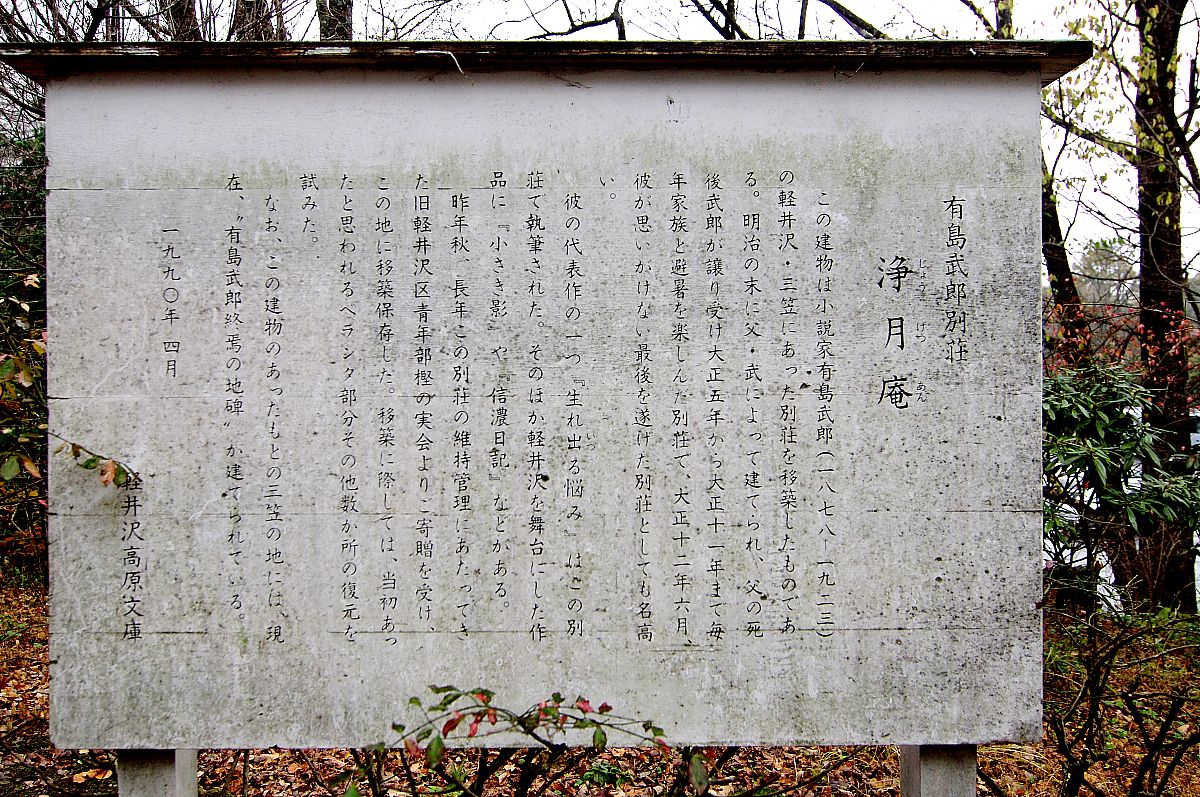 有島武郎別荘
浄月庵
じょう げつ あん
この建物は小説家有島武郎(一八七八ー一九二三)
の軽井沢・三笠にあった別荘を移築したものであ
る。明治の末に父・武によって建てられ、父の死
後武郎が譲り受け大正五年から大正十一年まで毎
年家族と避暑を楽しんだ別荘で、大正十二年六月、
彼が思いがけない最後を遂げた別荘としても名高
い。
彼の代表作の一つ『生れ出る悩み』はこの別
いづ
荘で執筆された。そのほか軽井沢を舞台にした作
品に『小さき影』や『信濃日記』などがある。
昨年秋、長年この別荘の維持管理にあたってき
た旧軽井沢区青年部樫の実会よりご寄贈を受け、
この地に移築保存した。移築に際しては、当初あっ
たと思われるベランダ部分その他数か所の復元を
試みた。
なお、この建物のあったもとの三笠の地には、現
在、〝有島武郎終焉の地碑〟が建てられている。
一九九〇年 四月
軽井沢高原文庫